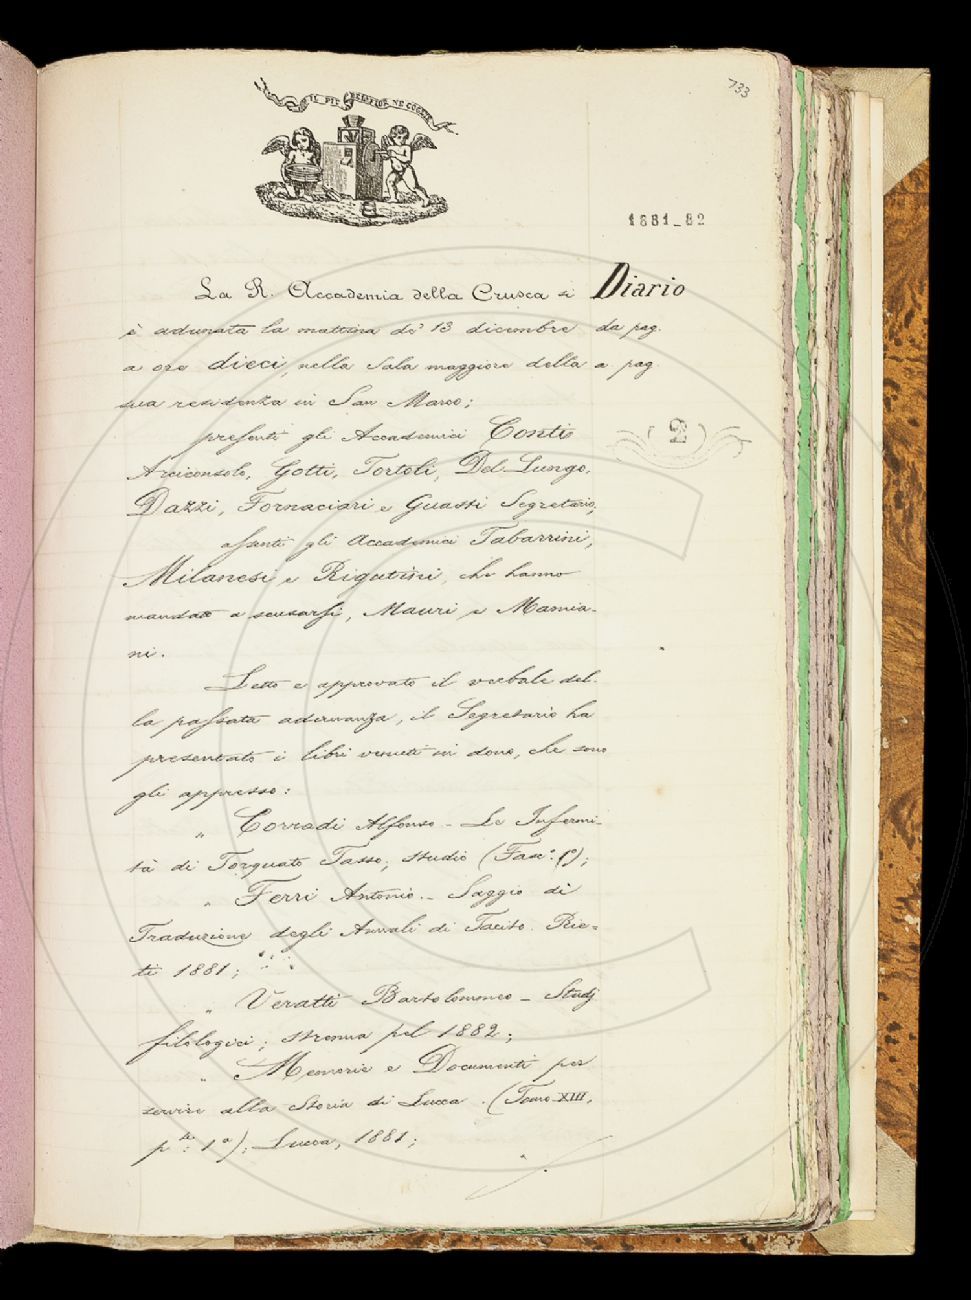 IL PIÙ BEL FIOR NE COGLIE
133
1881_82
Diario
da pag.
a pag.
2
La R. Accademia della Crusca si
è adunata la mattina de' 13 dicembre
a ore dieci, nella Sala maggiore della
sua residenza in San Marco;
presenti gli Accademici Conti
Arciconsolo, Gotti, Tortoli, Del Lungo,
Dazzi, Fornaciari e Guasti Segretario,
assenti gli Accademici Tabarrini,
Milanesi e Rigutini, che hanno
mandato a scusarsi, Mauri e Mamia-
ni.
Letto e approvato il verbale del-
la passata adunanza, il Segretario ha
presentato i libri venuti in dono, che sono
gli appresso:
„ Corradi Alfonso - Le Infermi-
tà di Torquato Tasso, studio (Fasc.);
„ Ferri Antonio. - Saggio di
Traduzione degli Annali di Tacito. Rie-
ti 1881;
„ Veratti Bartolommeo - Studj
filologici; strenna pel 1882;
„ Memorie e Documenti per
servire alla Storia di Lucca. (Tomo XIII,
p.te 1ª); Lucca, 1881;